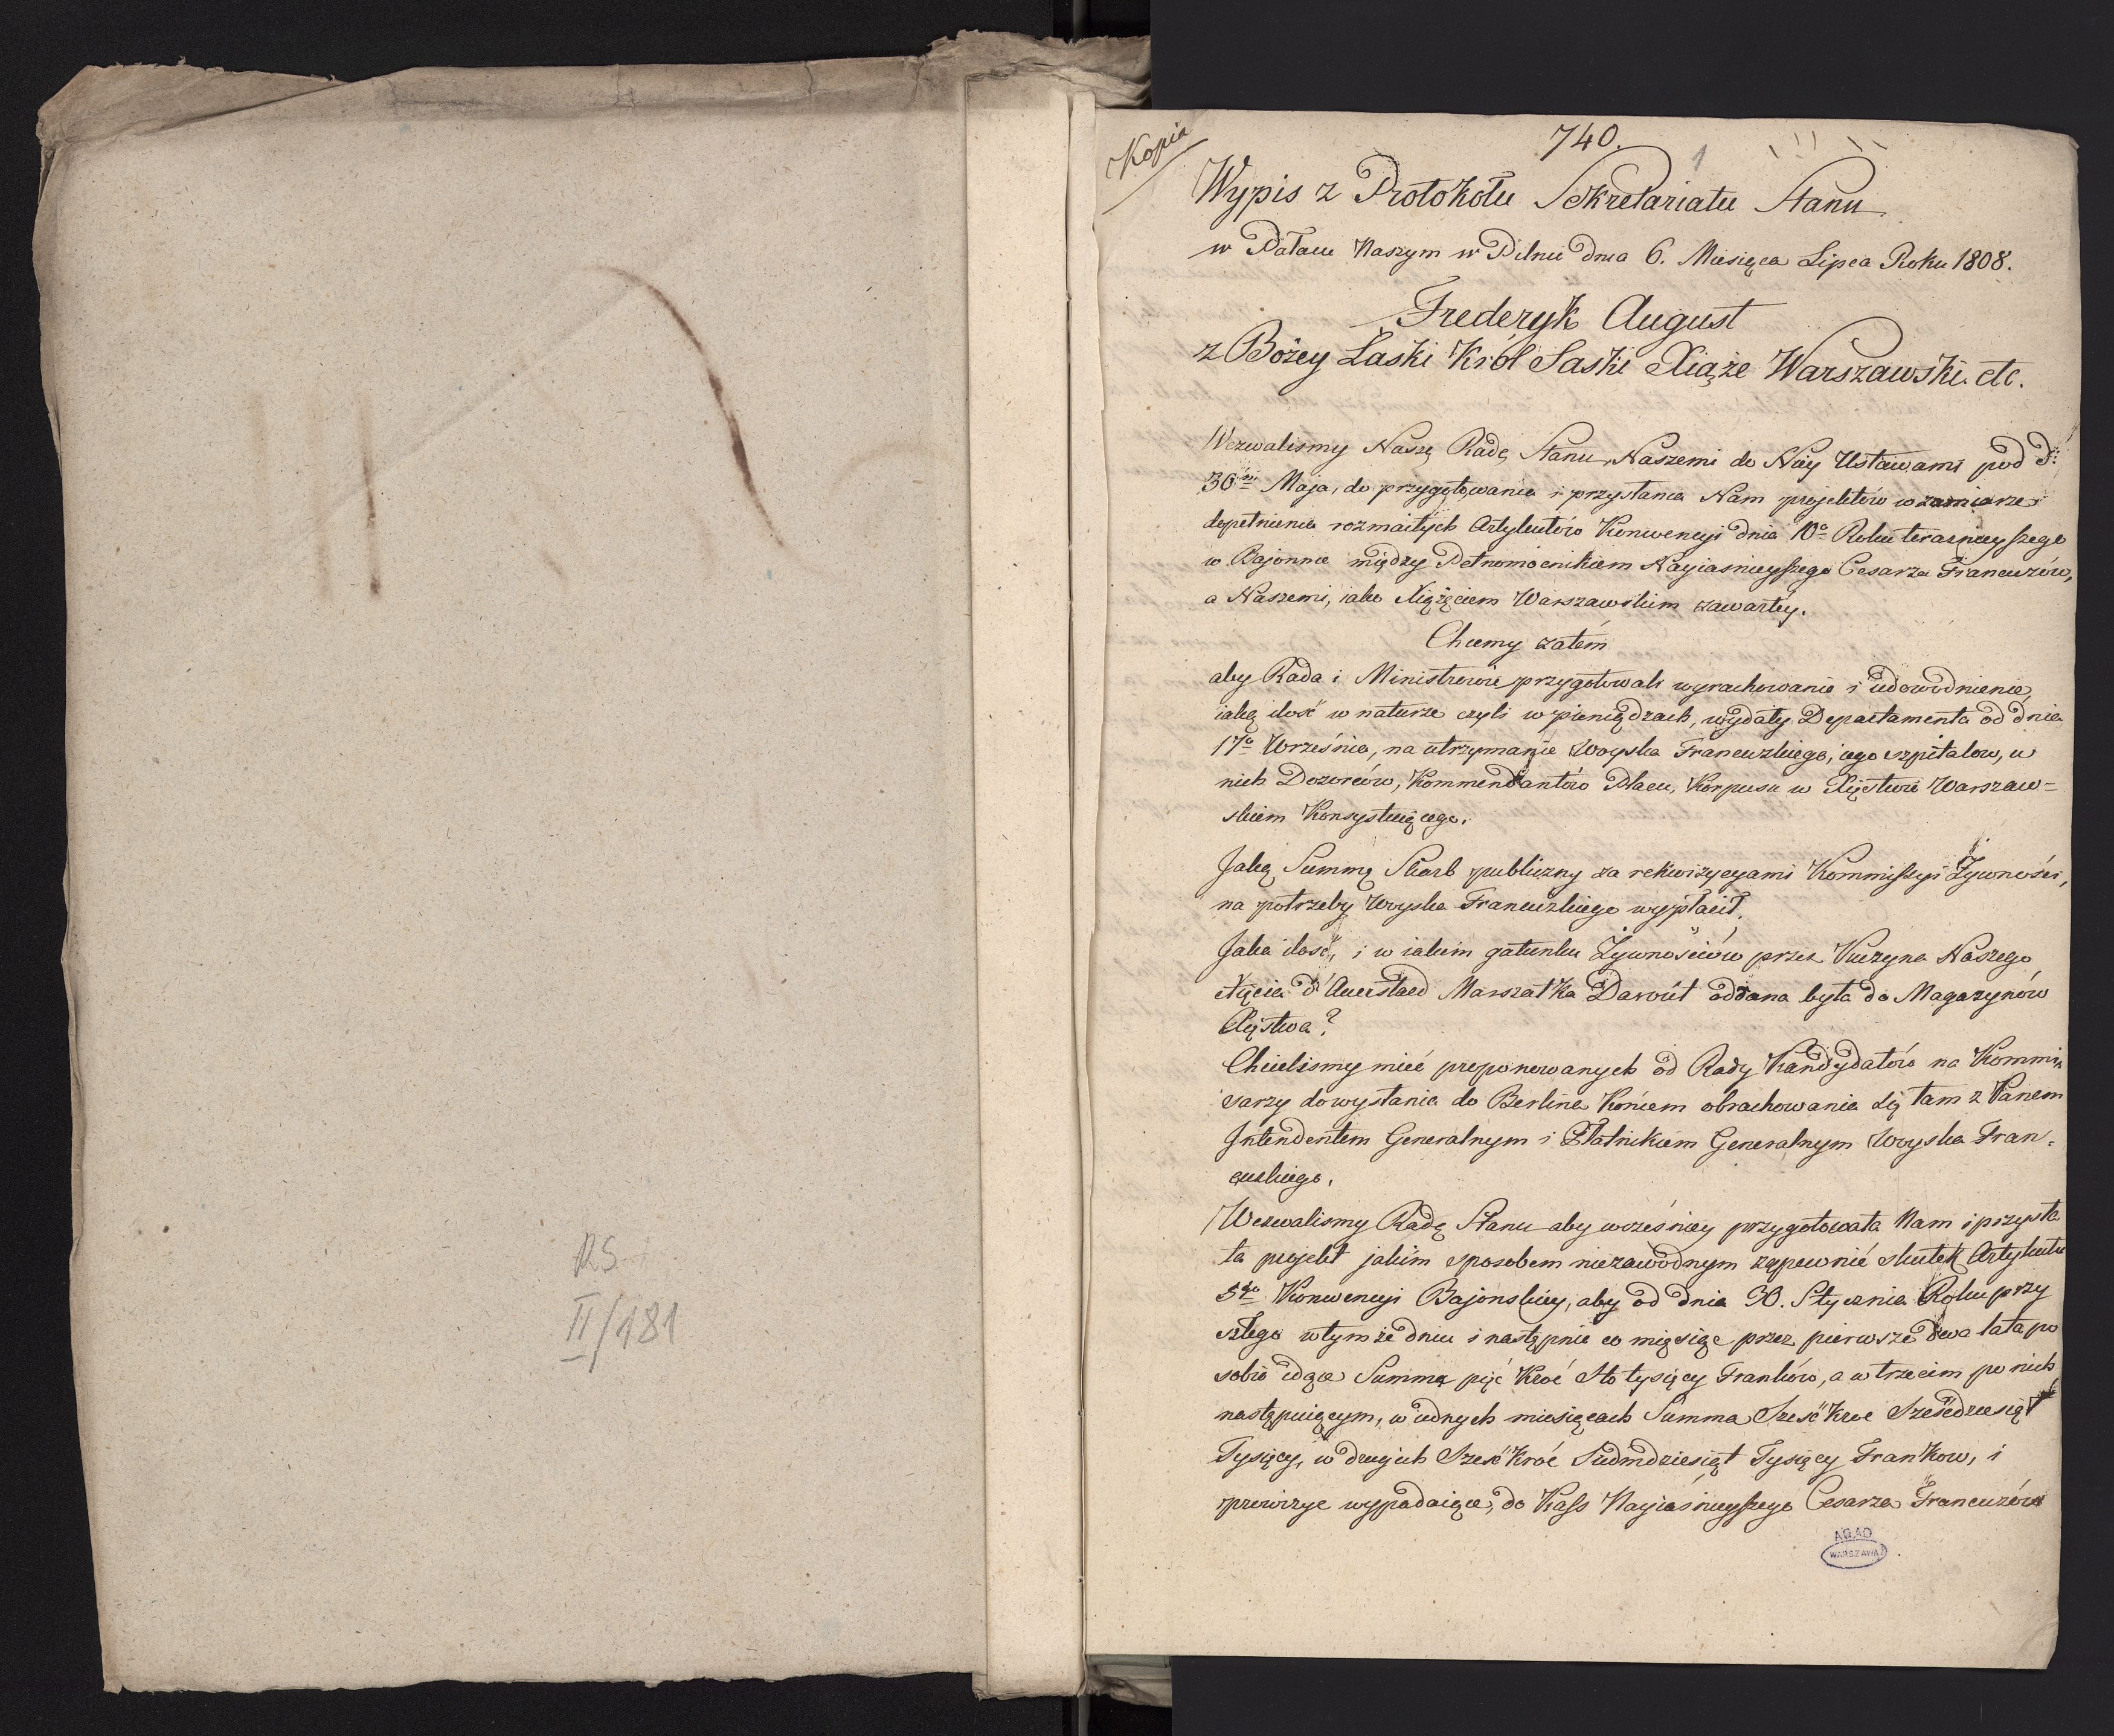 RS
II/181
Kopia
740.
1
Wypis z Protokołu Sekretariatu Stanu
w Pałacu Naszym w Pilnic dnia 6. Miesiąca Lipca Roku 1808.
Frederyk August
z Bożey Łaski Król Saski Xiąże Warszawski. etc.
Wezwalismy Naszę Radę Stanu, Naszemi do Niey Ustawami pod d:
30 Maja, do przygotowania i przysłania Nam projektów w zamiarze
dopełnienia rozmaitych Artykułów Konwencyi dnia 10º Roku teraznieyszego
w Bajonnie między Pełnomocnikiem Nayiasnieyszego Cesarza Francuzów,
a Naszemi, iako Xiążęciem Warszawskim zawartéy.
Chcemy zatém
aby Rada i Ministrowie przygotowali wyrachowanie i udowodnienie,
iaką ilość w naturze czyli w pieniądzach, wydały Departamenta od dnia
17º Września, na utrzymanie Woyska Francuzkiego, iego szpitalow, w
nich Dozorców, Kommendantów Placu, Korpusu w Xięstwie Warszaw=
skiem Konsystuiącego.
Jaką Summę Skarb publiczny za rekwizycyami Kommissyi Żywności,
na potrzeby Woyska Francuzkiego wypłacił.
Jaka ilość, i w iakim gatunku Żywnościów przez Kuzyna Naszego
Xięcia d'Auerstaed Marszałka Davoút oddana była do Magazynów
Xięstwa?
Chcielismy mieć preponowanych od Rady Kandydatów na Kommis
sarzy do wysłania do Berlina Końcem obrachowania się tam z Panem
Intendentem Generalnym i Płatnikiem Generalnym Woyska Fran=
cuzkiego.
Wezwalismy Radę Stanu aby wcześniey przygotowała Nam i przysła
ła projekt jakim sposobem niezawodnym zapewnić skutek Artykułu
5go Konwencyi Bajonskiey, aby od dnia 30. Stycznia Roku przy
szłego w tymże dniu i następnie co miesiąc przez pierwsze dwa lata po
sobie idące Summa pięć Kroć Sto tysięcy Franków, a w trzecim po nich
następuiącym, w iednych miesiącach Summa Sześć kroć Sześćdziesiąt
Tysięcy, w drugich Sześć kroć Siedmdziesiąt Tysięcy Frankow, i
prowizye wypadaiące, do Kass Nayiaśnieyszego Cesarza Francuzów
AGAD
WARSZAWA